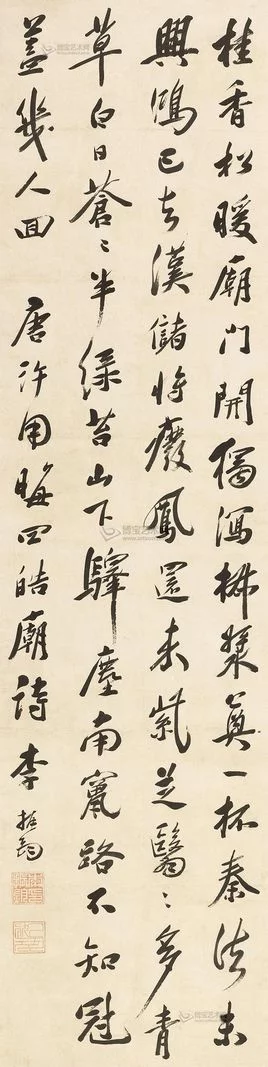 桂香松暖廟門開獨瀉椒漿奠一杯秦法未
興鴻已去漢儲將廢鳳還來紫芝翳〻多青
草白日蒼〻半綠苔山下驛塵南竄路不知冠
蓋幾人回 唐許用晦四皓廟詩 李振鈞
博宝艺术网